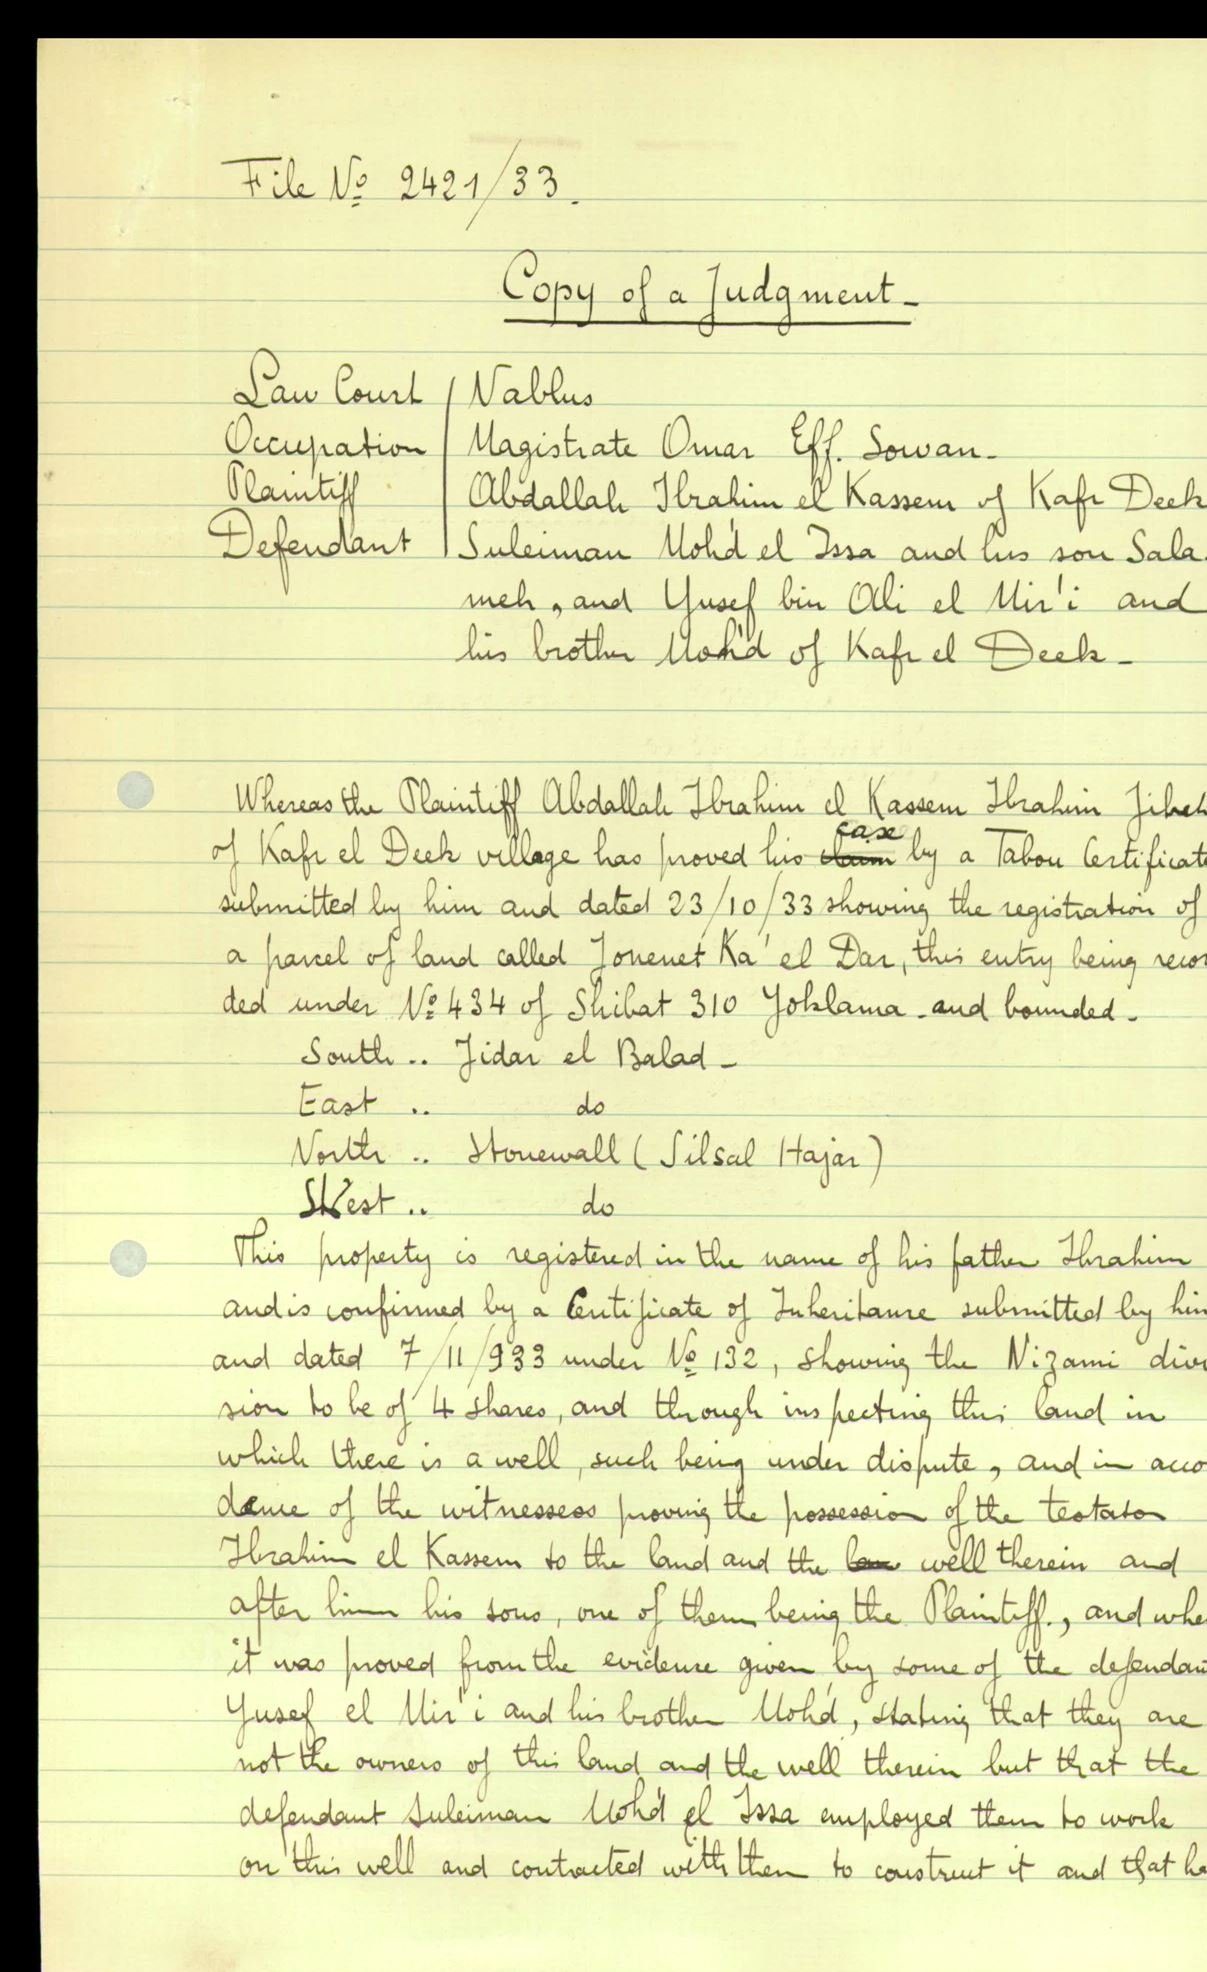 File No 2421/33.
Copy of a Judgment -
Law Court | Nablus
Occupation | Magistrate Omar Eff. Sowan -
Plaintiff | Abdallah Ibrahim el Kassem of Kafr Deek
Defendant | Suleiman Moh'd el Issa and his son Sala
meh, and Yusef bin Ali el Mir'i and
his brother Moh'd of Kafr el Deek -
Whereas the Plaintiff Abdallah Ibrahim el Kassem Ibrahim
of Kafr el Deek village has proved his claim case by a Tabou Certificat
submitted by him and dated 23/10/33 showing the registration of
a parcel of land called Jonenet Ka' el Dar, this entry being recor
ded under No 434 of Shibat 310 Yoklama - and bounded -
South .. Jidar el Balad -
East .. do
North .. Stonewall (Silsal Hajar)
West .. do
This property is registered in the name of his father Ibrahim
and is confirmed by a Certificate of Inheritance submitted by him
and dated 7/11/933 under No 132, showing the Nizami divi
sion to be of 4 shares, and through inspecting this land in
which there is a well, such being under dispute, and in acco
dence of the witnessess proving the possession of the testator
Ibrahim el Kassem to the land and the well therein and
after him his sons, one of them being the Plaintiff., and whe
it was proved from the evidence given by some of the defendan
Yusef el Mir'i and his brother Moh'd, stating that they are
not the owners of this land and the well therein but that the
defendant Suleiman Moh'd el Issa employed them to work
on this well and contracted with them to construct it and that he